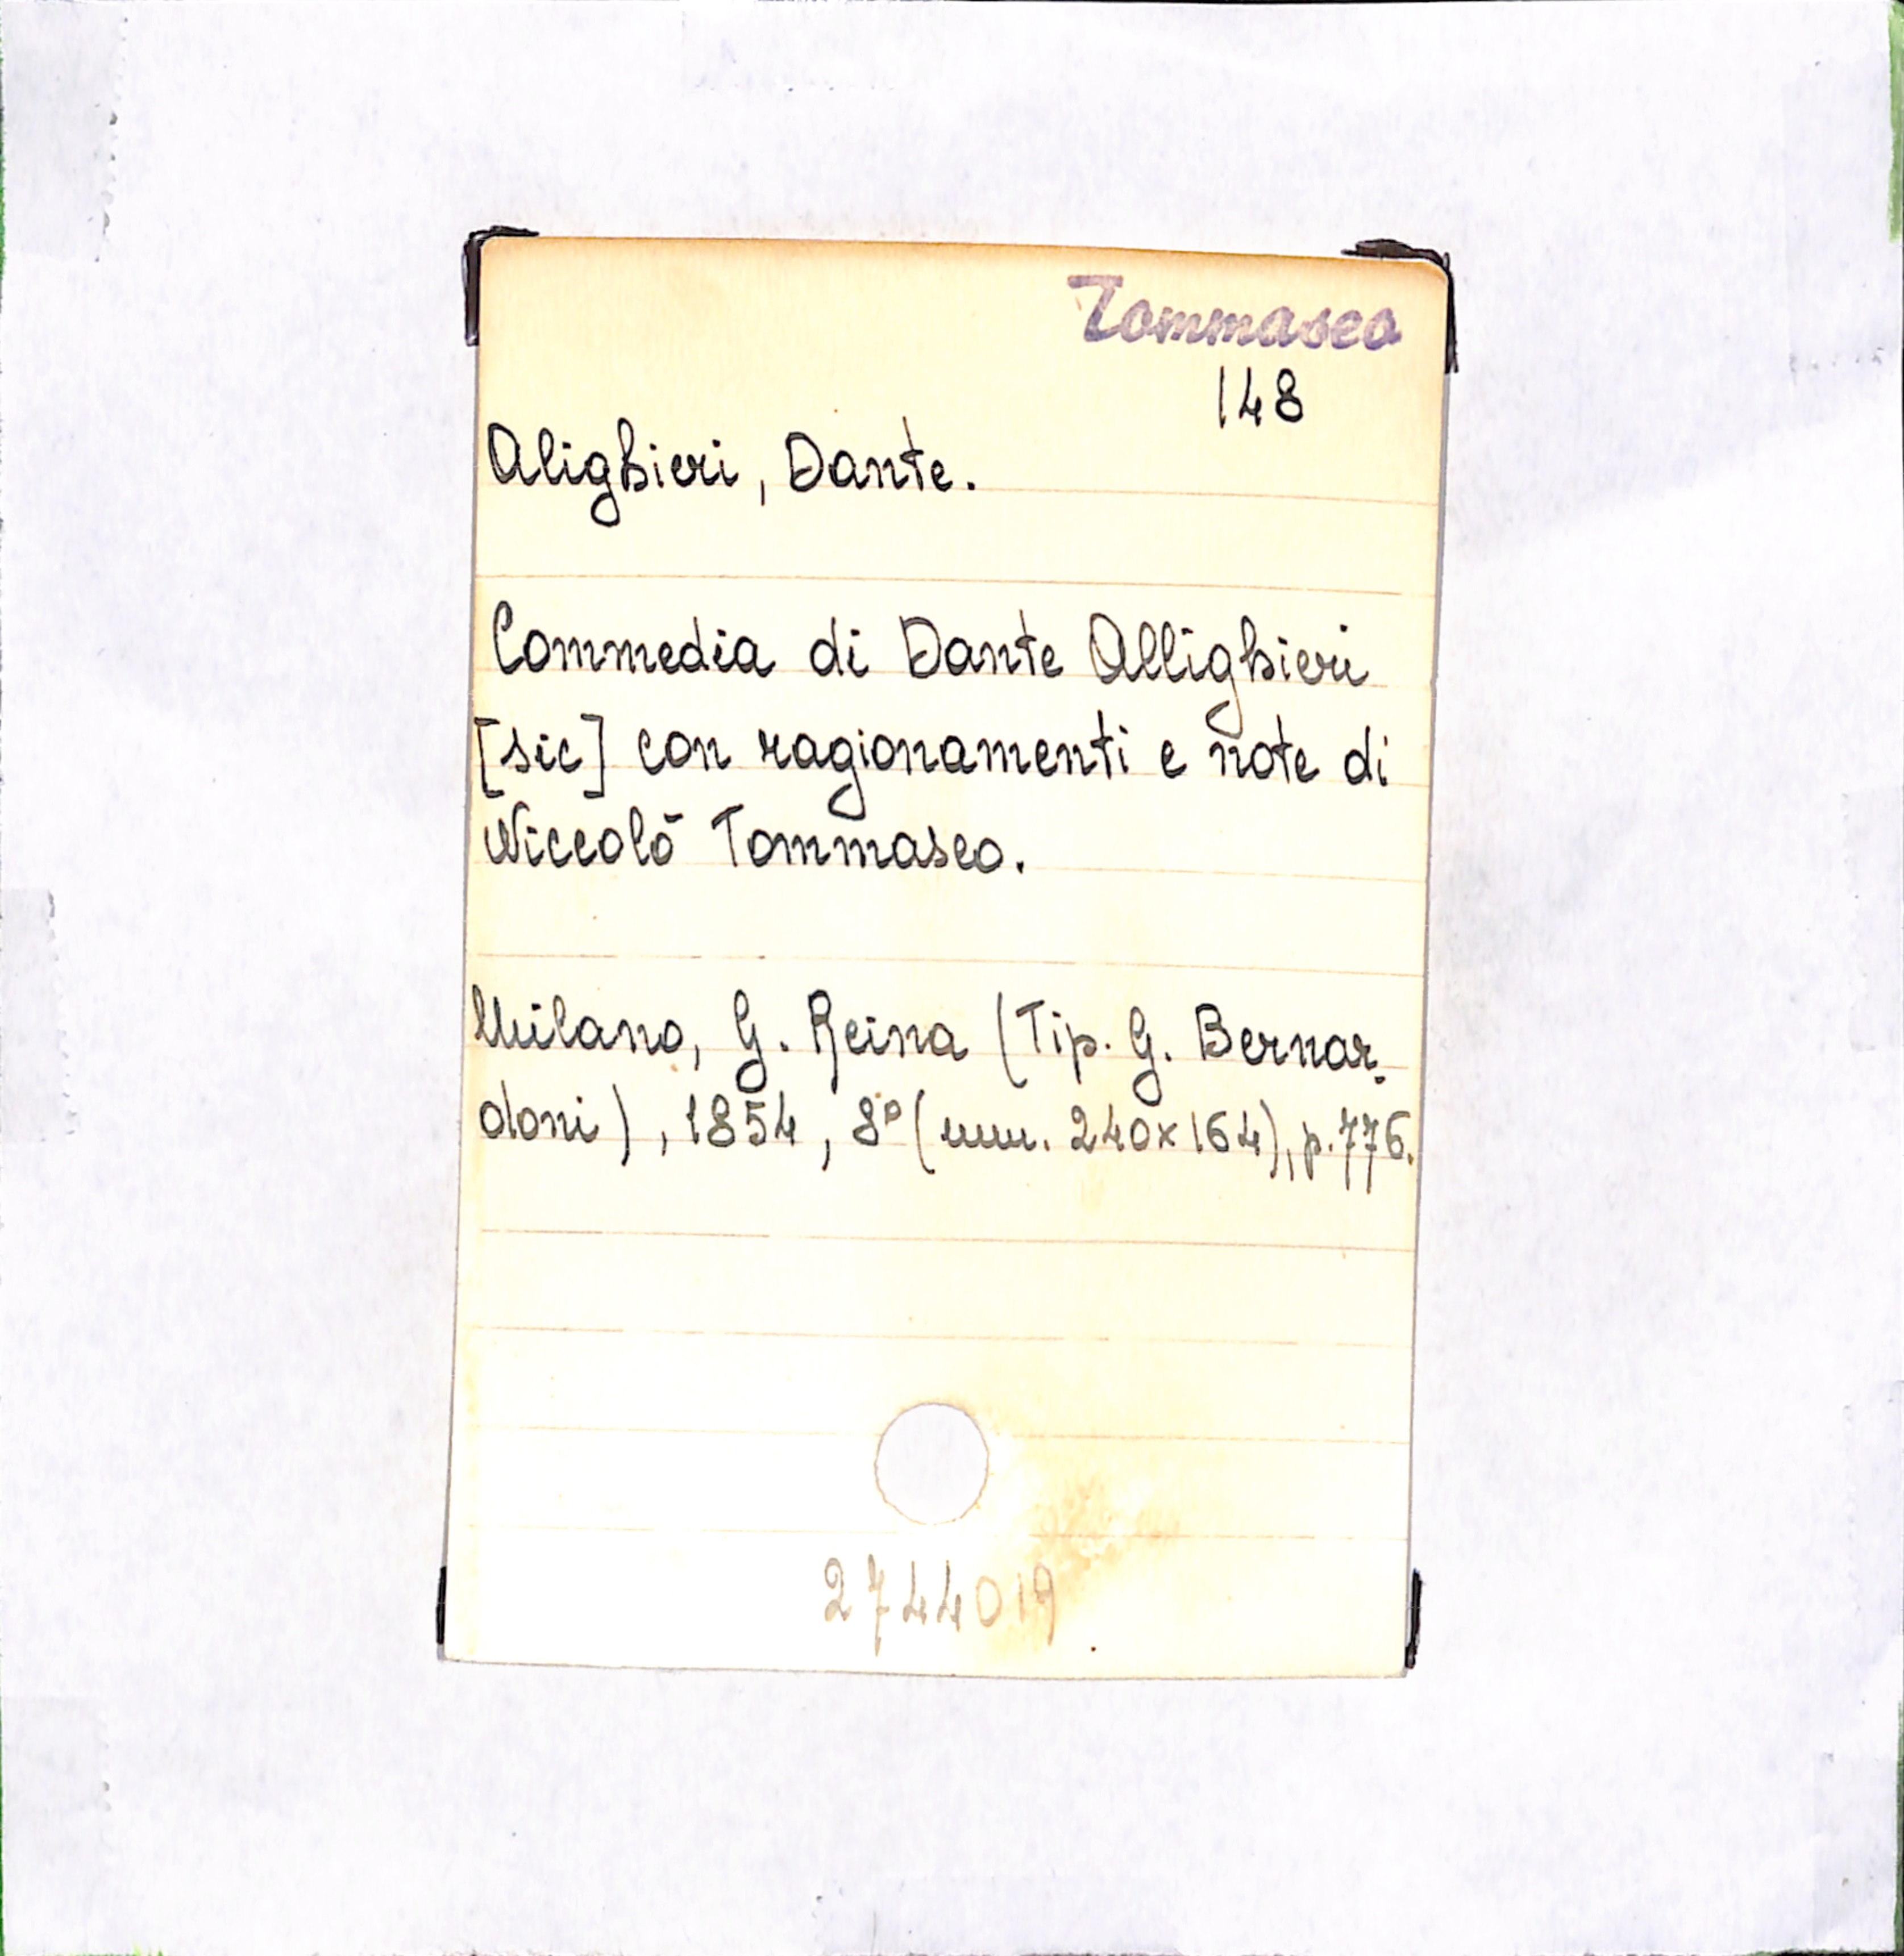 Tommaseo
148
Alighieri, Dante.
Commedia di Dante Allighieri
[sic] con ragionamenti e note di
Niccolò Tommaseo.
Milano, G. Reina (Tip. G. Bernar-
doni), 1854, 8º (mm. 240x164), p. 776.
2744019